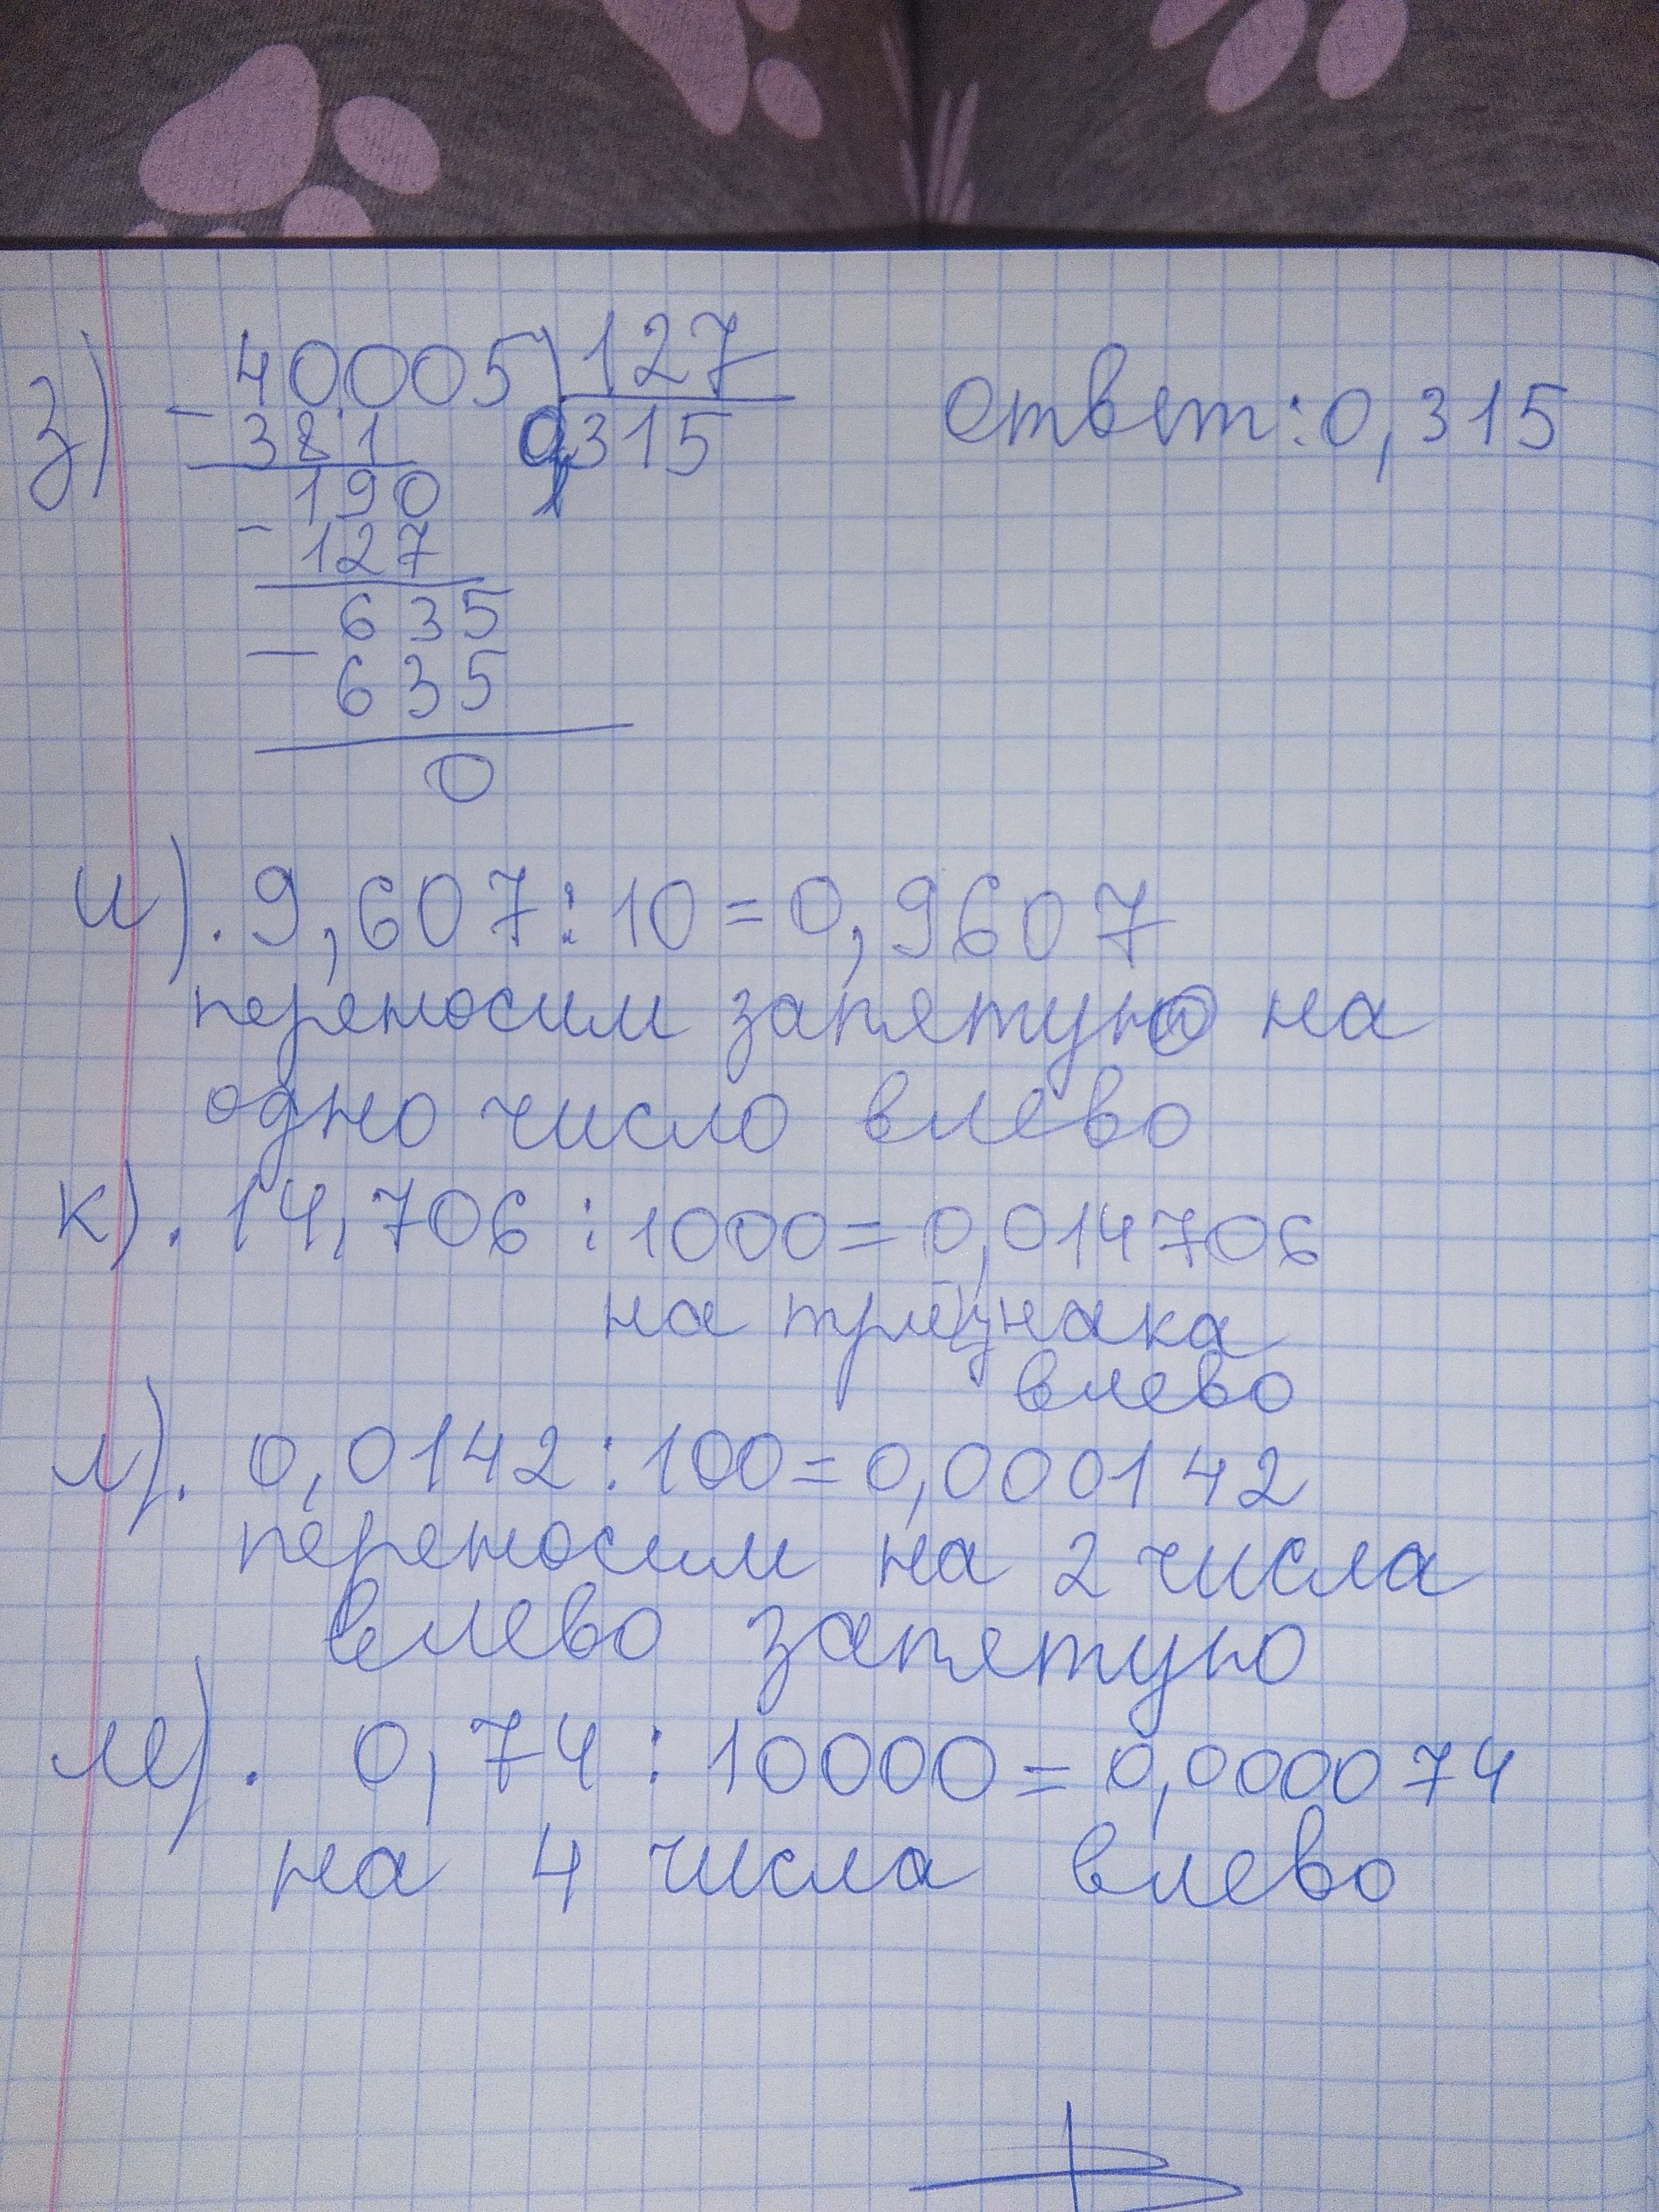 з) 40005 127 ответ: 0,315
- 381 0,315
190
- 127
635
- 635
0
и). 9,607 : 10 = 0,9607
переносим запятую на
одно число влево
к). 14,706 : 1000 = 0,014706
на три знака
влево
л). 0,0142 : 100 = 0,000142
переносим на 2 числа
влево запятую
м). 0,74 : 10000 = 0,000074
на 4 числа влево